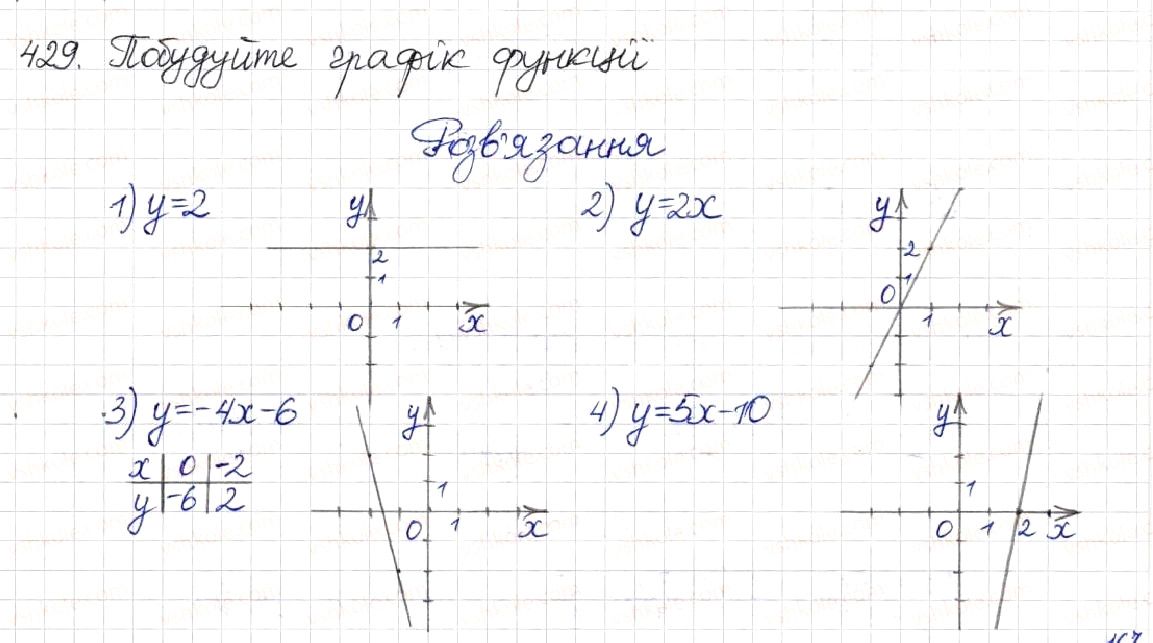 429. Побудуйте графік функції
Розв'язання
1) y=2
y
2
1
0 1 x
2) y=2x
y
2
1
0
1 x
3) y=-4x-6
x | 0 | -2
y | -6 | 2
y
1
0 1 x
4) y=5x-10
y
1
0 1 2 x